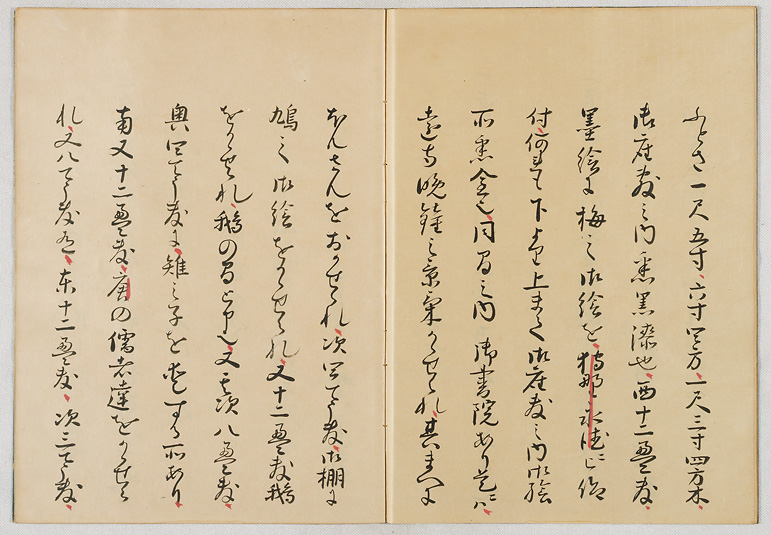 ふとさ一尺五寸、六寸四方、一尺三寸四方木、
御座敷之内悉黒漆也、西十二畳敷、
墨絵に梅之御絵を、狩野永徳ニ被仰
付、何れも下より上まて御座敷之内御絵
所悉金也、同間之内御書院あり、是ニハ、
遠寺晩鐘之景気かゝせられ、其まへに
ほんさんをおかせられ、次四てう敷、御棚に
鳩之御絵をかゝせられ、又十二畳敷鵝
をかゝせられ、鵝の間と申也、又其次八畳敷、
奥四てう敷に、雉之子を愛する所あり、
南又十二畳敷、唐の儒者達をかゝせら
れ、又八てう敷有、東十二畳敷、次三てう敷、